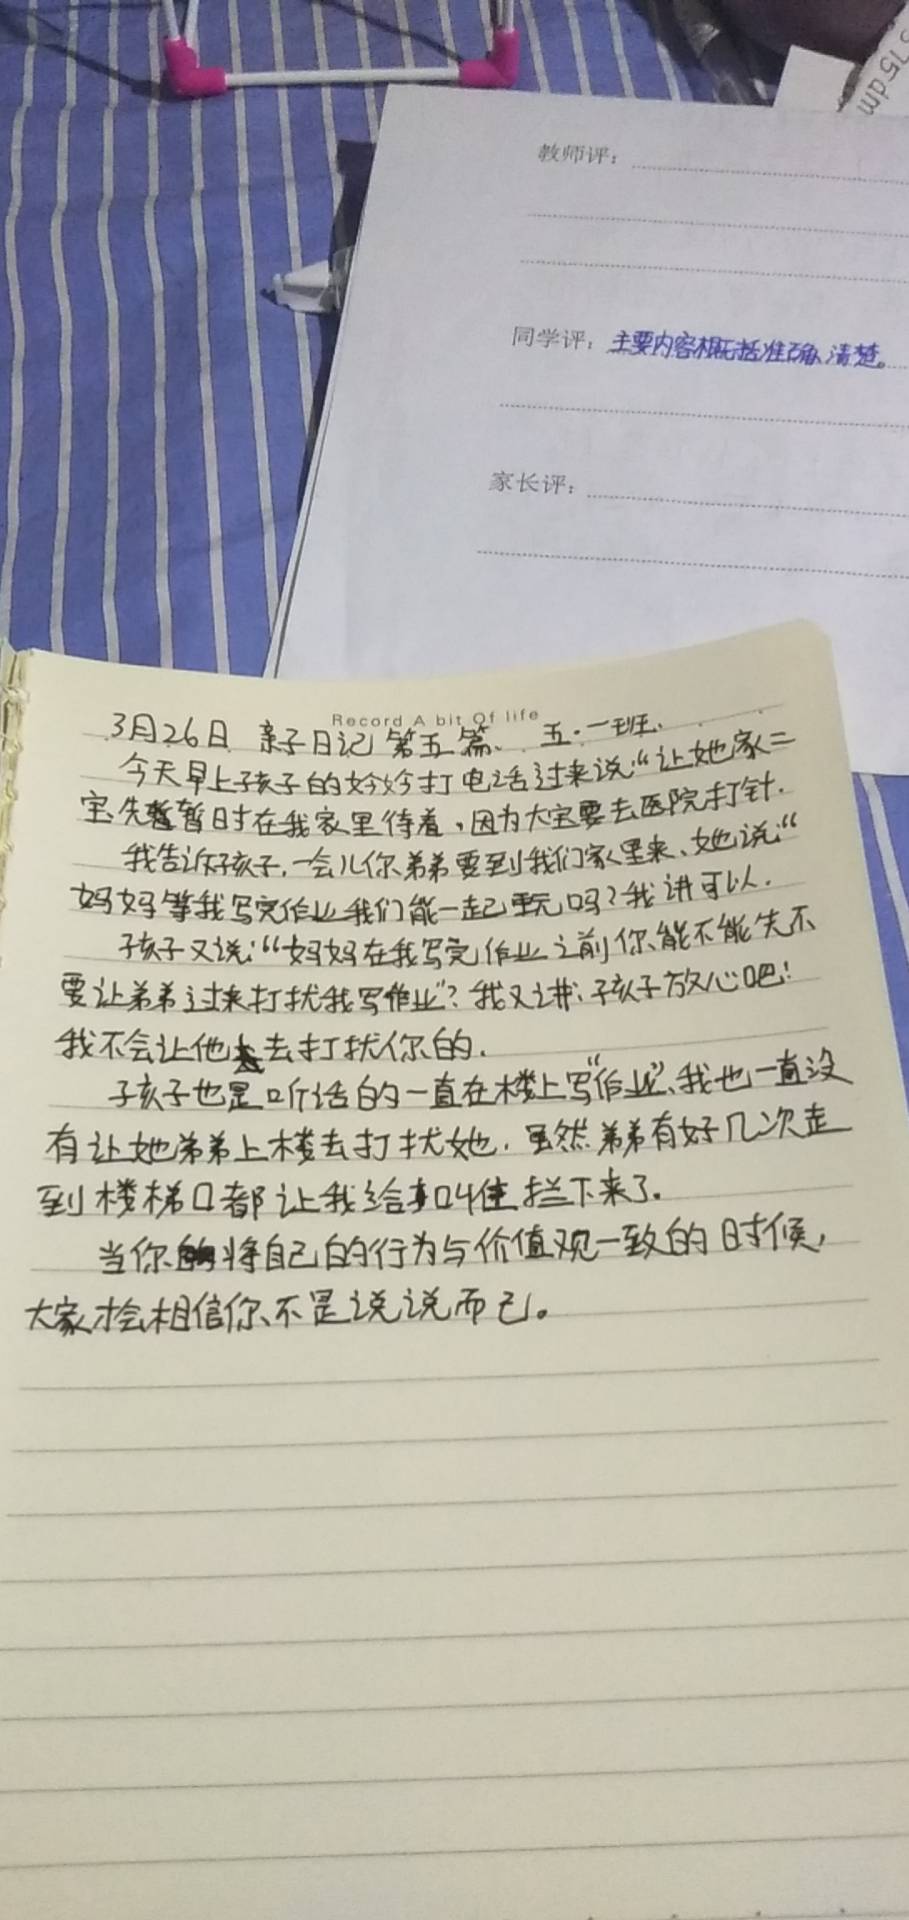 75dm
教师评：
同学评：主要内容概括准确、清楚。
家长评：
Record A bit Of life
3月26日 亲子日记 第五篇、 五·一班、
今天早上孩子的妗妗打电话过来说“让她家二
宝先暂时在我家里待着，因为大宝要去医院打针.
我告诉孩子，一会儿你弟弟要到我们家里来、她说“
妈妈等我写完作业我们能一起玩吗？我讲可以.
孩子又说：“妈妈在我写完作业之前你能不能先不
要让弟弟过来打扰我写作业”？我又讲：孩子放心吧！
我不会让他去打扰你的.
孩子也是听话的一直在楼上写“作业”、我也一直没
有让她弟弟上楼去打扰她. 虽然弟弟有好几次走
到楼梯口都让我给叫住拦下来了.
当你将自己的行为与价值观一致的时候,
大家才会相信你、不是说说而已。